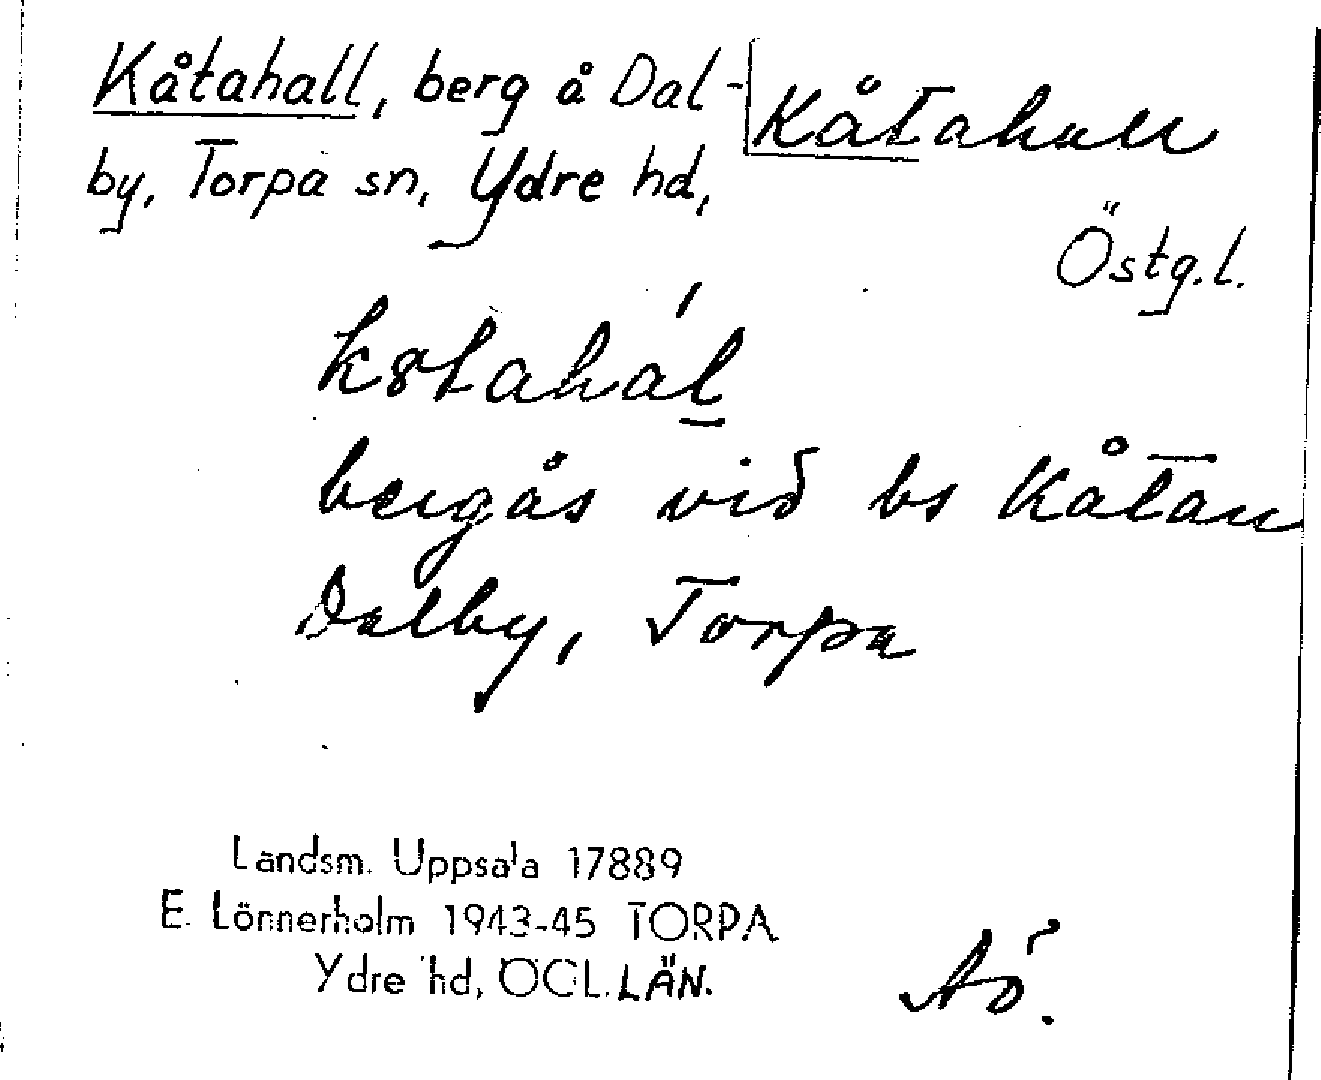 Kåtahall, berg å Dal-
by, Torpa sn, Ydre hd,
Kåtahall
Östg.l.
bergås vid bs Kåtan
Dalby, Torpa
Landsm. Uppsala 17889
E. Lönnerholm 1943-45 TORPA
Ydre hd, ÖGL. LÄN.